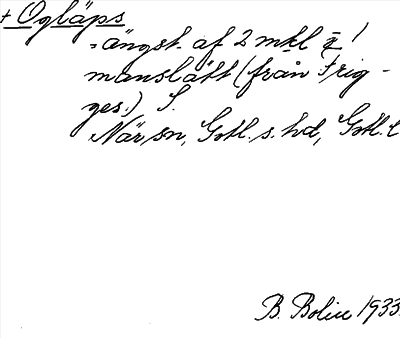 + Ogläps
-ängst. af 2 mkl i 1
manslått (från Frig-
ges.) S.
När sn, Gotl. s. hd, Gotl. l
B. Bolin 1933.